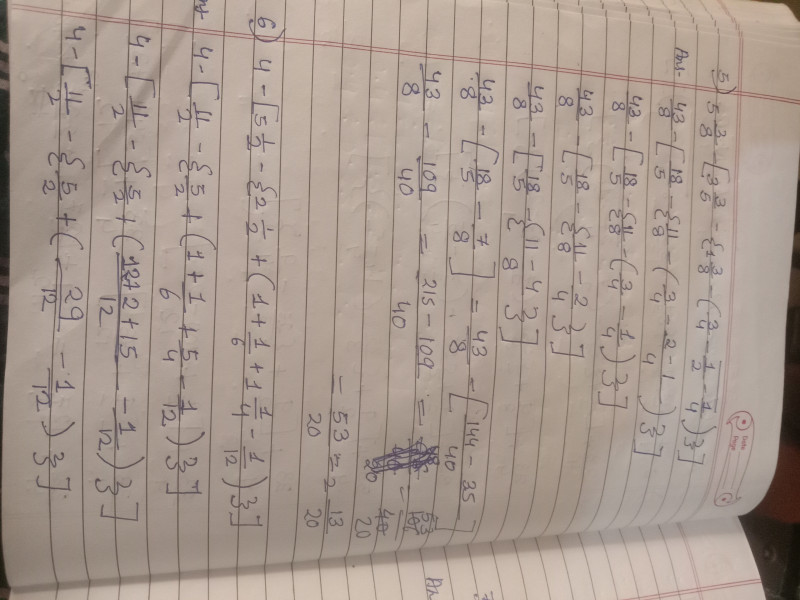 5) 5 3/8 - [3 3/5 - {1 3/8 - (3/4 - 1/2 - 1/4)}]
Date
Page
Ans- 43/8 - [18/5 - {11/8 - (3/4 - 2-1/4)}]
43/8 - [18/5 - {11/8 - (3/4 - 1/4)}]
43/8 - [18/5 - {11/8 - 2/4}]
43/8 - [18/5 - {11-4/8}]
43/8 - [18/5 - 7/8] = 43/8 - [144-35/40]
43/8 - 109/40 = 215-109/40 = 53/20
= 53/20 = 2 13/20
6) 4 - [5 1/2 - {2 1/2 + (1 + 1/6 + 1 1/4 - 1/12)}]
4 - [11/2 - {5/2 + (1 + 1/6 + 5/4 - 1/12)}]
4 - [11/2 - {5/2 + (12+2+15/12 - 1/12)}]
4 - [11/2 - {5/2 + (29/12 - 1/12)}]